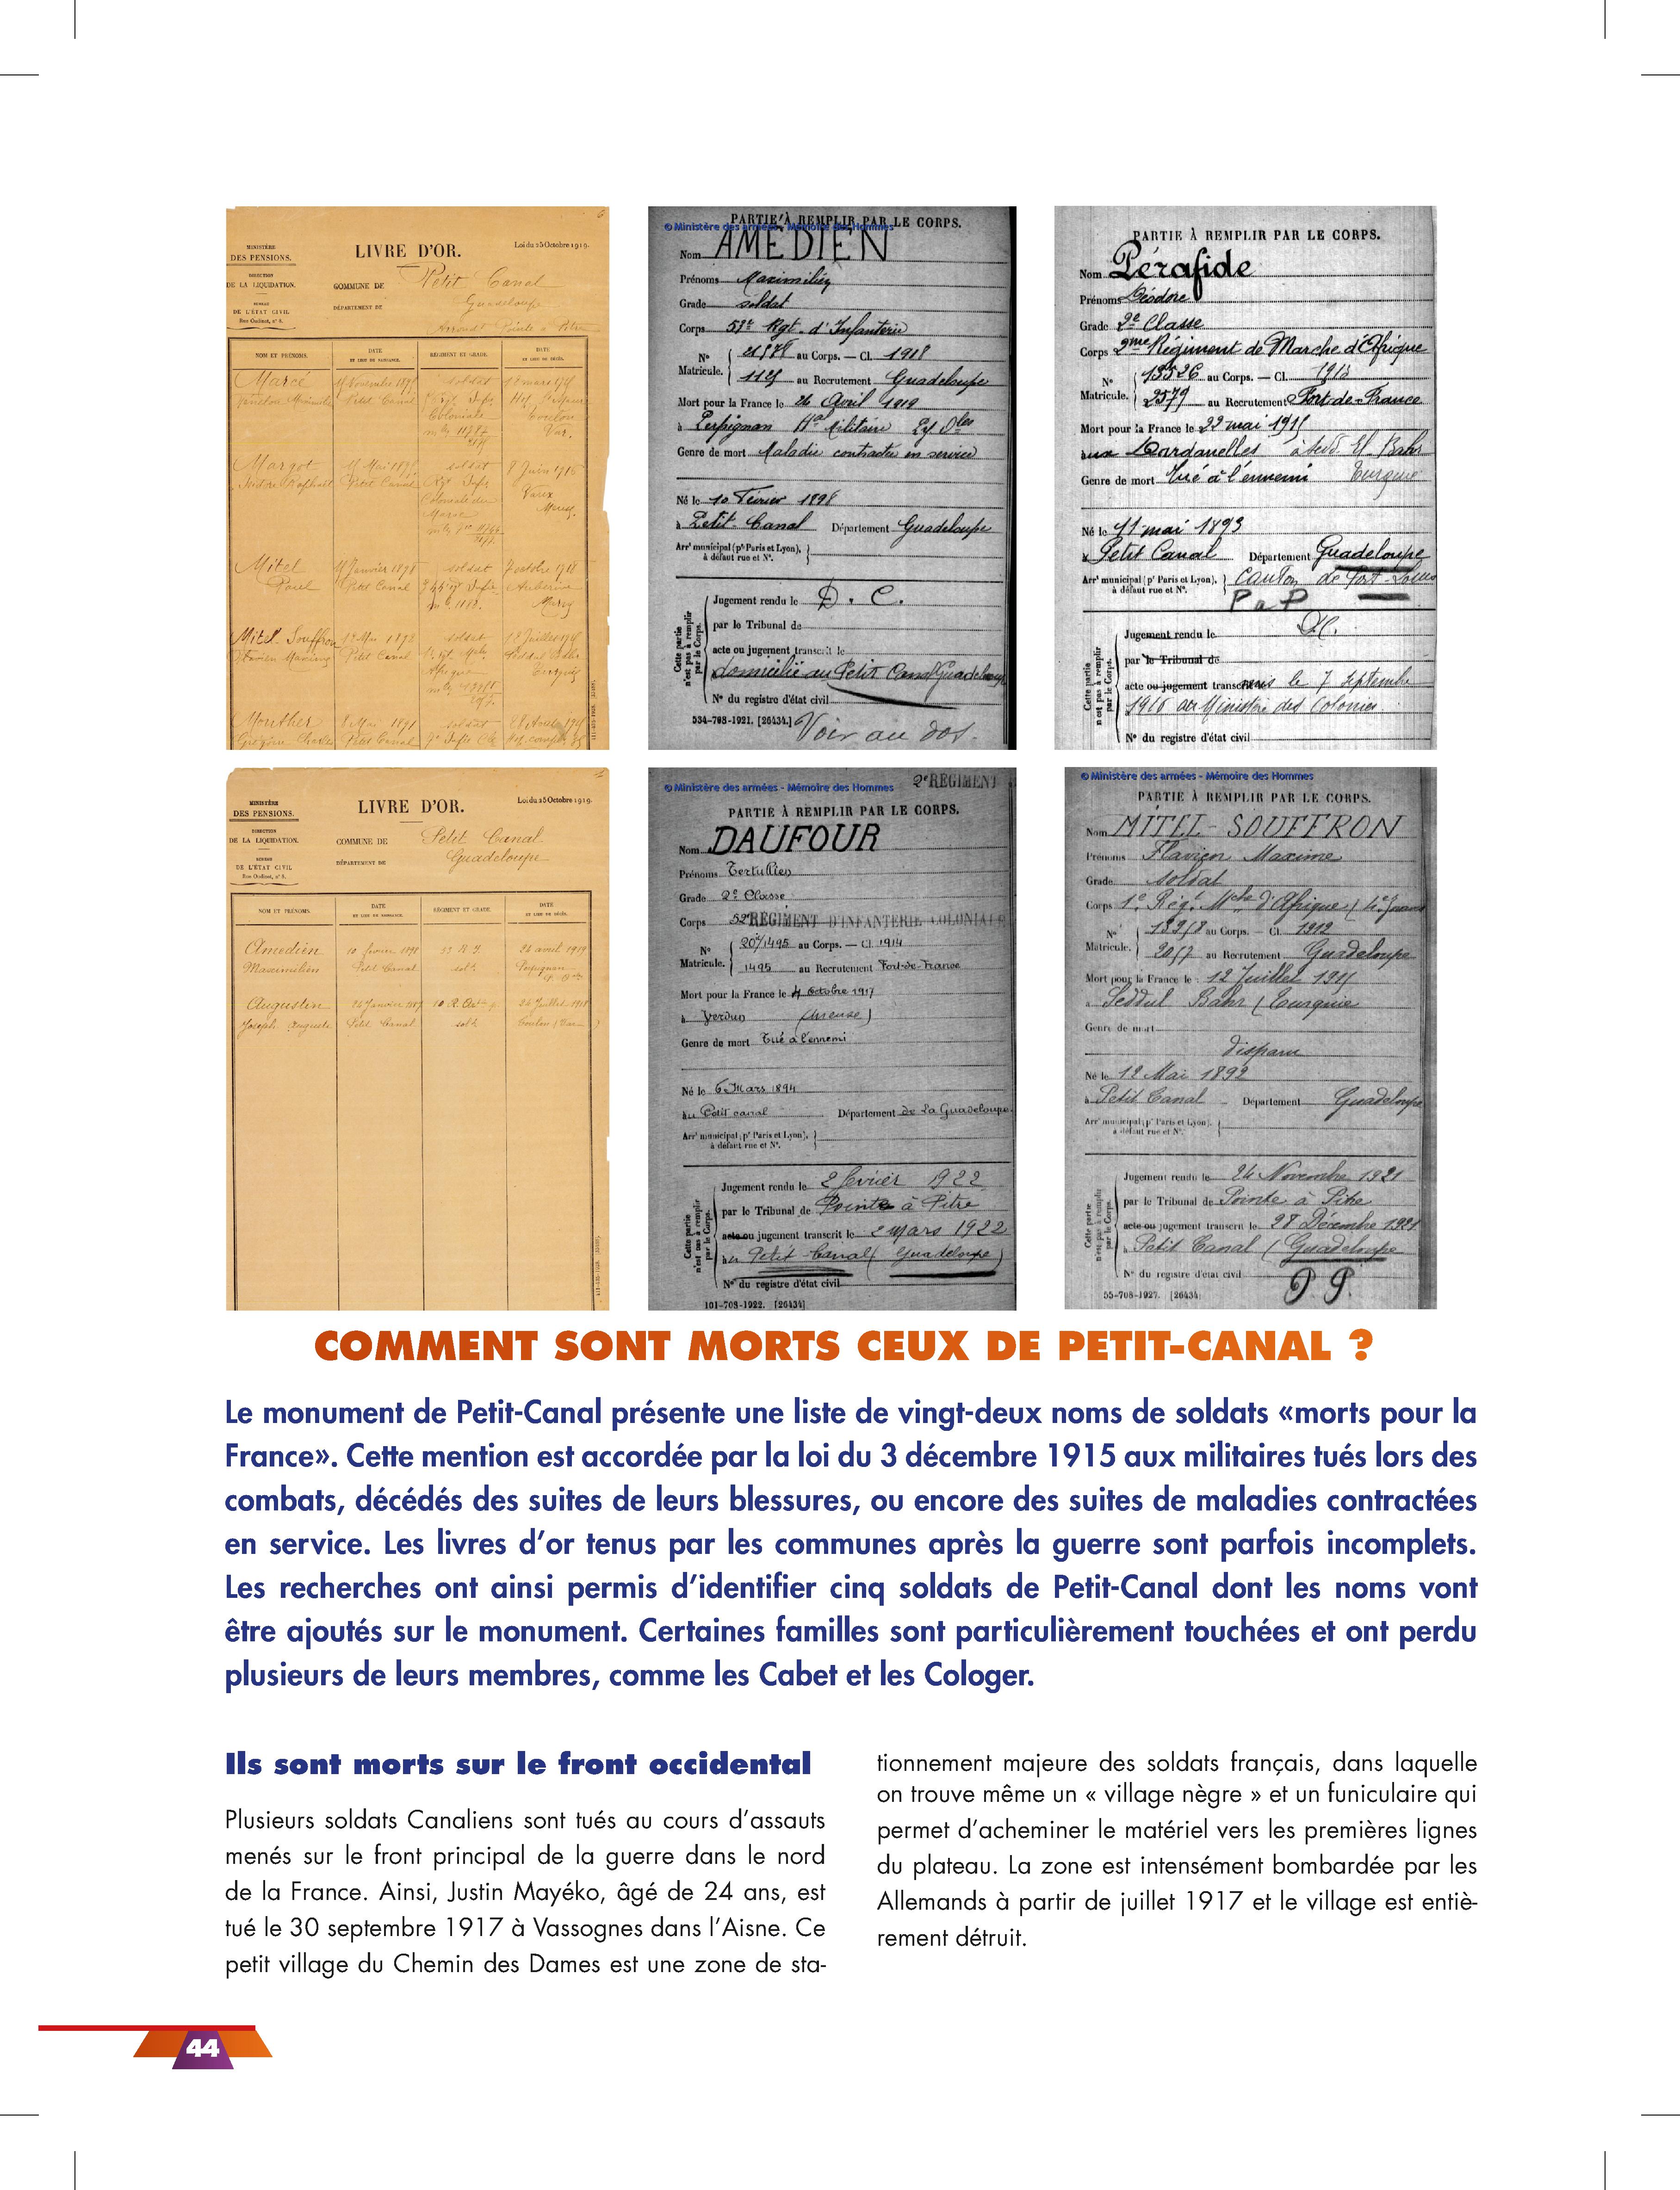 MINISTÈRE
DES PENSIONS.
DIRECTION
DE LA LIQUIDATION.
BUREAU
DE L'ÉTAT CIVIL
LIVRE D'OR.
Loi du 25 Octobre 1919.
COMMUNE DE Petit Canal
DÉPARTEMENT DE Guadeloupe
NOM ET PRÉNOMS.
DATE
ET LIEU DE NAISSANCE.
RÉGIMENT ET GRADE.
DATE
ET LIEU DE DÉCÈS.
Marcé
Petit Canal
soldat
Margot
Petit Canal
soldat
Mitel
Paul
Petit Canal
soldat
Mitel Souffron
Petit Canal
soldat
Petit Canal
soldat
PARTIE À REMPLIR PAR LE CORPS.
© Ministère des armées - Mémoire des Hommes
Nom AMÉDIEN
Prénoms Maximilien
Grade soldat
Corps 53e Rgt d'Infanterie
N° au Corps. — Cl. 1918
Matricule. au Recrutement Guadeloupe
Mort pour la France le 26 Avril 1919
à Perpignan Hal Militaire
Genre de mort Maladie contractée en service
Né le 10 Février 1898
à Petit-Canal Département Guadeloupe
Arrt municipal (pr Paris et Lyon),
à défaut rue et N°.
Cette partie
n'est pas à remplir
par le Corps.
Jugement rendu le D. C.
par le Tribunal de
acte ou jugement transcrit le
domicilié au Petit Canal Guadeloupe
N° du registre d'état civil
534-708-1921. [26434.]
Voir au dos.
PARTIE À REMPLIR PAR LE CORPS.
Nom Pérafide
Prénoms Léodore
Grade 2e Classe
Corps 2me Régiment de Marche d'Afrique
N° 13526 au Corps. — Cl. 1913
Matricule. 2579 au Recrutement Fort-de-France
Mort pour la France le 22 mai 1915
aux Dardanelles
Turquie
Genre de mort Tué à l'ennemi
Né le 11 mai 1893
à Petit Canal Département Guadeloupe
Arrt municipal (pr Paris et Lyon), Canton de Port-Louis
à défaut rue et N°.
P a P
Cette partie
n'est pas à remplir
par le Corps.
Jugement rendu le
par le Tribunal de
acte ou jugement le 7 septembre
1916 au Ministère des Colonies
N° du registre d'état civil
MINISTÈRE
DES PENSIONS.
DIRECTION
DE LA LIQUIDATION.
BUREAU
DE L'ÉTAT CIVIL
LIVRE D'OR.
Loi du 25 Octobre 1919.
COMMUNE DE Petit Canal
DÉPARTEMENT DE Guadeloupe
NOM ET PRÉNOMS.
DATE
ET LIEU DE NAISSANCE.
RÉGIMENT ET GRADE.
DATE
ET LIEU DE DÉCÈS.
Amedien 10 février 1898 53 R I. 26 avril 1919
Maximilien Petit Canal solt Perpignan
Augustin 24 Juillet 1918
Joseph Auguste Petit Canal solt Toulon (Var)
© Ministère des armées - Mémoire des Hommes
2e RÉGIMENT
PARTIE À REMPLIR PAR LE CORPS.
Nom DAUFOUR
Prénoms Tertullien
Grade 2e Classe
Corps 52e RÉGIMENT D'INFANTERIE COLONIALE
N° 20/1495 au Corps. — Cl. 1914
Matricule. 1495 au Recrutement Fort-de-France
Mort pour la France le 4 octobre 1917
à Verdun (Meuse)
Genre de mort Tué à l'ennemi
Né le 6 Mars 1894
au Petit canal Département de La Guadeloupe
Arrt municipal (pr Paris et Lyon),
à défaut rue et N°.
Cette partie
n'est pas à remplir
par le Corps.
Jugement rendu le 2 février 1922
par le Tribunal de Pointe à Pitre
acte ou jugement transcrit le 2 mars 1922
au Petit Canal (Guadeloupe)
N° du registre d'état civil
101-708-1922. [26434]
© Ministère des armées - Mémoire des Hommes
PARTIE À REMPLIR PAR LE CORPS.
Nom MITEL-SOUFFRON
Prénoms Flavien Maxime
Grade soldat
Corps 1e Régt Mche d'Afrique
N° au Corps. — Cl. 1912
Matricule. au Recrutement Guadeloupe
Mort pour la France le 12 Juillet 1915
à Seddul Bahr (Turquie
Genre de mort
disparu
Né le 12 Mai 1892
à Petit Canal Département Guadeloupe
Arrt municipal (pr Paris et Lyon),
à défaut rue et N°.
Cette partie
n'est pas à remplir
par le Corps.
Jugement rendu le 24 Novembre 1921
par le Tribunal de Pointe à Pitre
acte ou jugement transcrit le 28 Décembre 1921
à Petit Canal (Guadeloupe
N° du registre d'état civil
55-708-1927. [26434]
P P.
COMMENT SONT MORTS CEUX DE PETIT-CANAL ?
Le monument de Petit-Canal présente une liste de vingt-deux noms de soldats «morts pour la
France». Cette mention est accordée par la loi du 3 décembre 1915 aux militaires tués lors des
combats, décédés des suites de leurs blessures, ou encore des suites de maladies contractées
en service. Les livres d'or tenus par les communes après la guerre sont parfois incomplets.
Les recherches ont ainsi permis d'identifier cinq soldats de Petit-Canal dont les noms vont
être ajoutés sur le monument. Certaines familles sont particulièrement touchées et ont perdu
plusieurs de leurs membres, comme les Cabet et les Cologer.
Ils sont morts sur le front occidental
Plusieurs soldats Canaliens sont tués au cours d'assauts
menés sur le front principal de la guerre dans le nord
de la France. Ainsi, Justin Mayéko, âgé de 24 ans, est
tué le 30 septembre 1917 à Vassognes dans l'Aisne. Ce
petit village du Chemin des Dames est une zone de sta-
tionnement majeure des soldats français, dans laquelle
on trouve même un « village nègre » et un funiculaire qui
permet d'acheminer le matériel vers les premières lignes
du plateau. La zone est intensément bombardée par les
Allemands à partir de juillet 1917 et le village est entiè-
rement détruit.
44